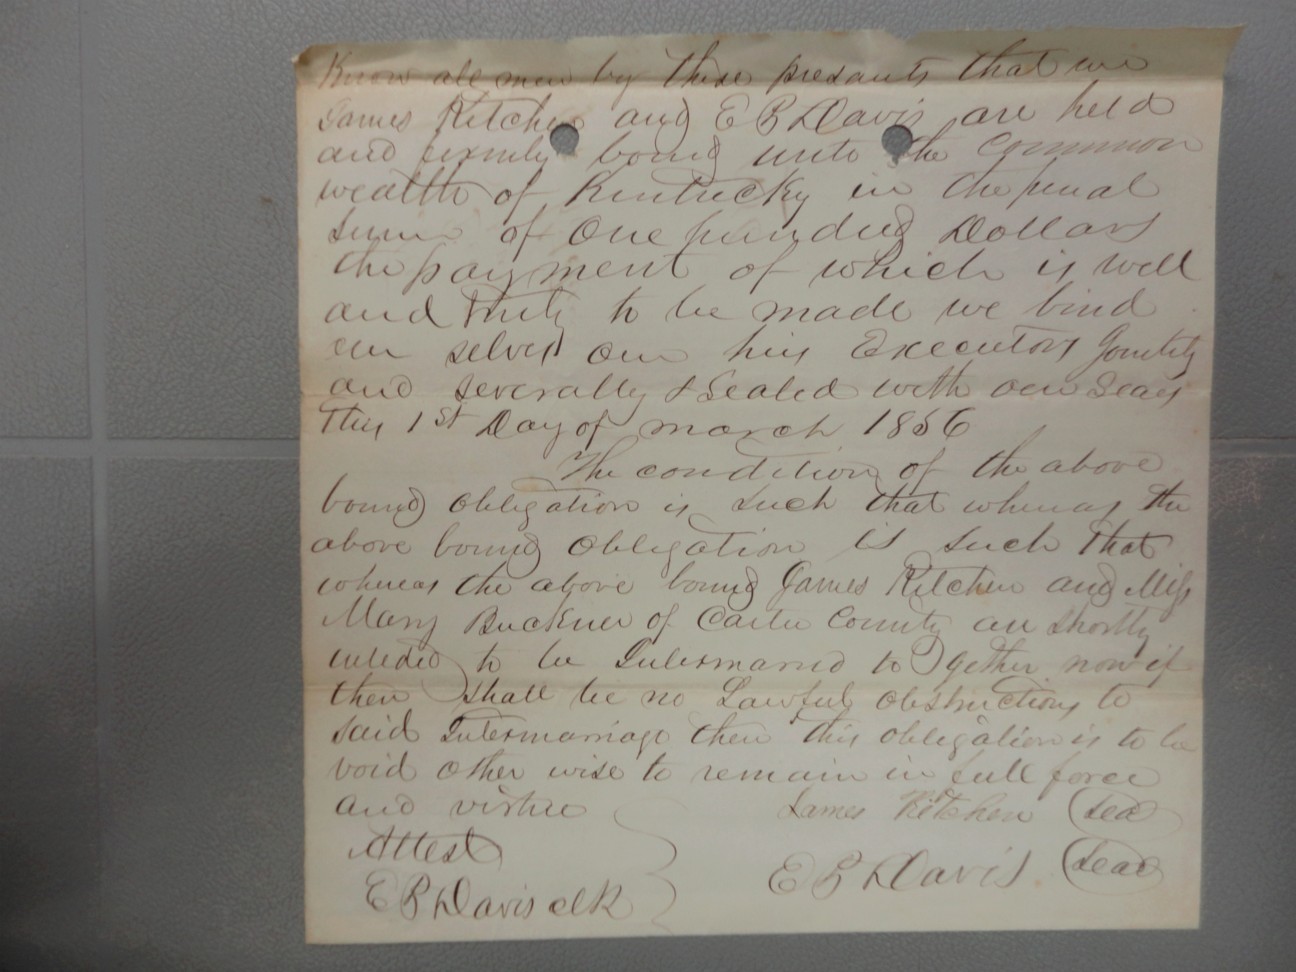 Know all men by these presants that we
James Kitchen and E B Davis are held
and firmly bound unto the Common
wealth of Kentucky in the penal
Sum of One hundred Dollars
the payment of which is well
and truly to be made we bind
our selves our his Executors Jointly
and severally & Sealed with our Seals
this 1st Day of march 1856
The condition of the above
bound obligation is such that whereas the
above bound obligation is such that
whereas the above bound James Kitchen and Miss
Mary Buckner of Carter County are shortly
inteded to be Intermarried to gether now if
then shall be no Lawful obstructions to
said Intermarriage then this obligation is to be
void other wise to remain in full force
and virtue James Kitchen (Seal
Attest
E B Davis (Seal
E B Davis clk